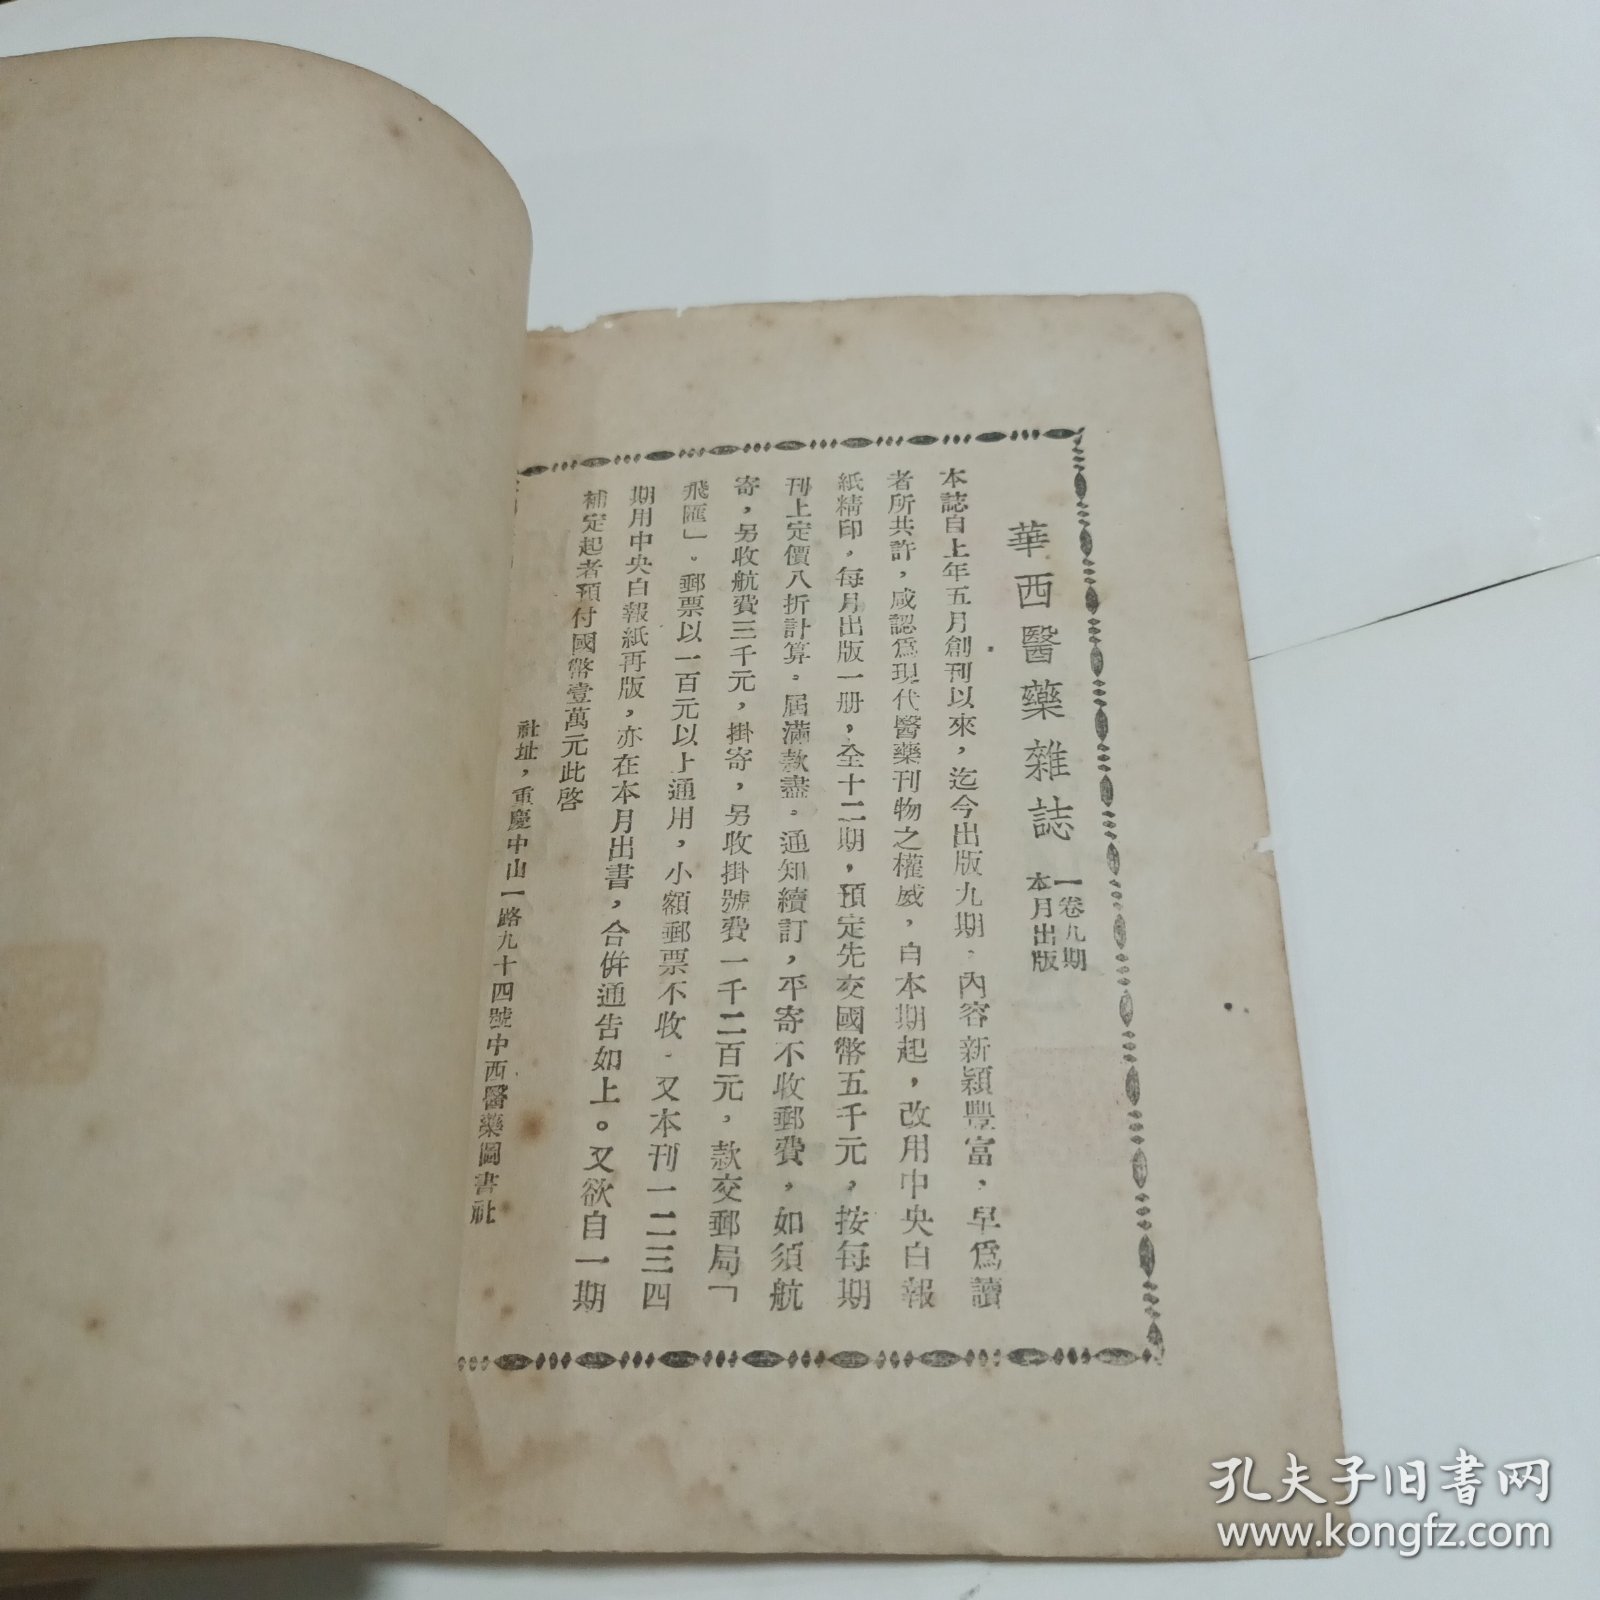 華西醫藥雜誌
一卷九期
本月出版
本誌自上年五月創刊以來，迄今出版九期，內容新穎豐富，早爲讀
者所共許，咸認爲現代醫藥刊物之權威，自本期起，改用中央白報
紙精印，每月出版一册，全十二期，預定先交國幣五千元，按每期
刊上定價八折計算。屆滿款盡。通知續訂，平寄不收郵費，如須航
寄，另收航費三千元，掛寄，另收掛號費一千二百元，款交郵局「
飛匯」。郵票以一百元以上通用，小額郵票不收．又本刊一二三四
期用中央白報紙再版，亦在本月出書，合併通告如上。又欲自一期
補定起者預付國幣壹萬元此啓
社址，重慶中山一路九十四號中西醫藥圖書社
孔夫子旧书网
www.kongfz.com